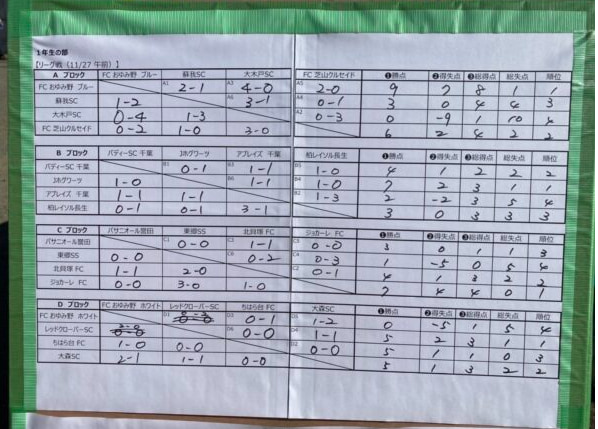 1年生の部
【リーグ戦（11/27 午前）】
A ブロック FC おゆみ野 ブルー 蘇我SC 大木戸SC FC 芝山クルセイド ❶勝点 ❷得失点 ❸総得点 総失点 順位
FC おゆみ野 ブルー A1 2-1 A3 4-0 A5 2-0 9 7 8 1 1
蘇我SC 1-2 A6 3-1 A4 0-1 3 0 4 4 3
大木戸SC 0-4 1-3 A2 0-3 0 -9 1 10 4
FC 芝山クルセイド 0-2 1-0 3-0 6 2 4 2 2
B ブロック バディーSC 千葉 Jホグワーツ アブレイズ 千葉 柏レイソル長生 ❶勝点 ❷得失点 ❸総得点 総失点 順位
バディーSC 千葉 B1 0-1 B3 1-1 B5 1-0 4 1 2 2 2
Jホグワーツ 1-0 B6 1-1 B4 1-0 7 2 3 1 1
アブレイズ 千葉 1-1 1-1 B2 1-3 2 -2 3 5 4
柏レイソル長生 0-1 0-1 3-1 3 0 3 3 3
C ブロック バサニオール誉田 東郷SS 北貝塚 FC ジョカーレ FC ❶勝点 ❷得失点 ❸総得点 総失点 順位
バサニオール誉田 C1 0-0 C3 1-1 C5 0-0 3 0 1 1 3
東郷SS 0-0 C6 0-2 C4 0-3 1 -5 0 5 4
北貝塚 FC 1-1 2-0 C2 0-1 4 1 3 2 2
ジョカーレ FC 0-0 3-0 1-0 7 4 4 0 1
D ブロック FC おゆみ野 ホワイト レッドクローバーSC ちはら台 FC 大森SC ❶勝点 ❷得失点 ❸総得点 総失点 順位
FC おゆみ野 ホワイト D1 D3 0-1 D5 1-2 0 -5 1 5 4
レッドクローバーSC D6 0-0 D4 1-1 5 2 3 1 1
ちはら台 FC 1-0 0-0 D2 0-0 5 1 1 0 3
大森SC 2-1 1-1 0-0 5 1 3 2 2